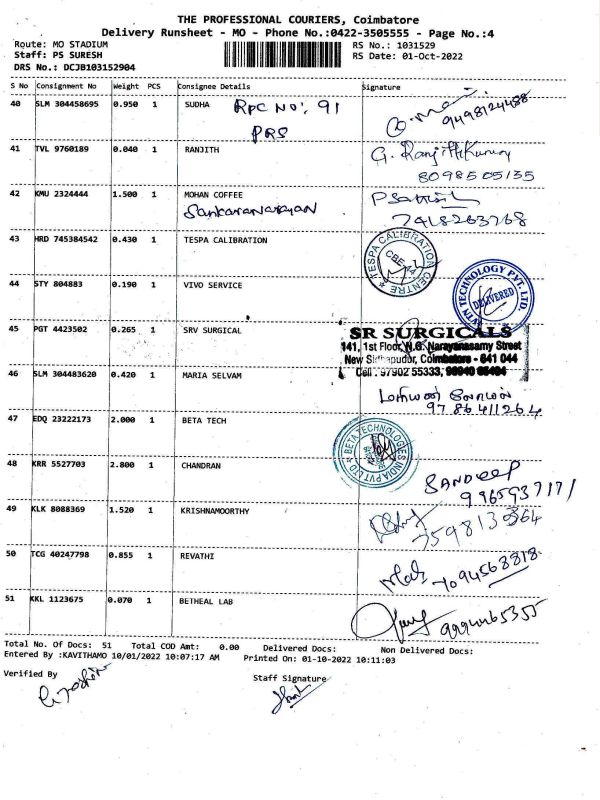 THE PROFESSIONAL COURIERS, Coimbatore
Delivery Runsheet - MO - Phone No.:0422-3505555 - Page No.:4
Route: MO STADIUM RS No.: 1031529
Staff: PS SURESH RS Date: 01-Oct-2022
DRS No.: DCJB103152904
S No Consignment No Weight PCS Consignee Details Signature
40 SLM 304458695 0.950 1 SUDHA RPC NO: 91
PRS
9498124488
41 TVL 9760189 0.040 1 RANJITH G. RanjithKumar
8098505135
42 KMU 2324444 1.500 1 MOHAN COFFEE
Sankaranarayan 7418263768
43 HRD 745384542 0.430 1 TESPA CALIBRATION TESPA CALIBRATION CENTRE
CBE-44
44 STY 804883 0.190 1 VIVO SERVICE TECHNOLOGY PVT. LTD.
DELIVERED
45 PGT 4423502 0.265 1 SRV SURGICAL SR SURGICALS
141, 1st Floor, N.G. Narayanasamy Street
New Sidhapudur, Coimbatore - 641 044
Cell : 97902 55333,
46 SLM 304483620 0.420 1 MARIA SELVAM
9786411264
47 EDQ 23222173 2.000 1 BETA TECH BETA TECHNOLOGIES INDIA PVT LTD
48 KRR 5527703 2.800 1 CHANDRAN SANDEEP
9965937171
49 KLK 8088369 1.520 1 KRISHNAMOORTHY
50 TCG 40247798 0.855 1 REVATHI 7094568818
51 KKL 1123675 0.070 1 BETHEAL LAB
Total No. Of Docs: 51 Total COD Amt: 0.00 Delivered Docs: Non Delivered Docs:
Entered By :KAVITHAMO 10/01/2022 10:07:17 AM Printed On: 01-10-2022 10:11:03
Verified By Staff Signature